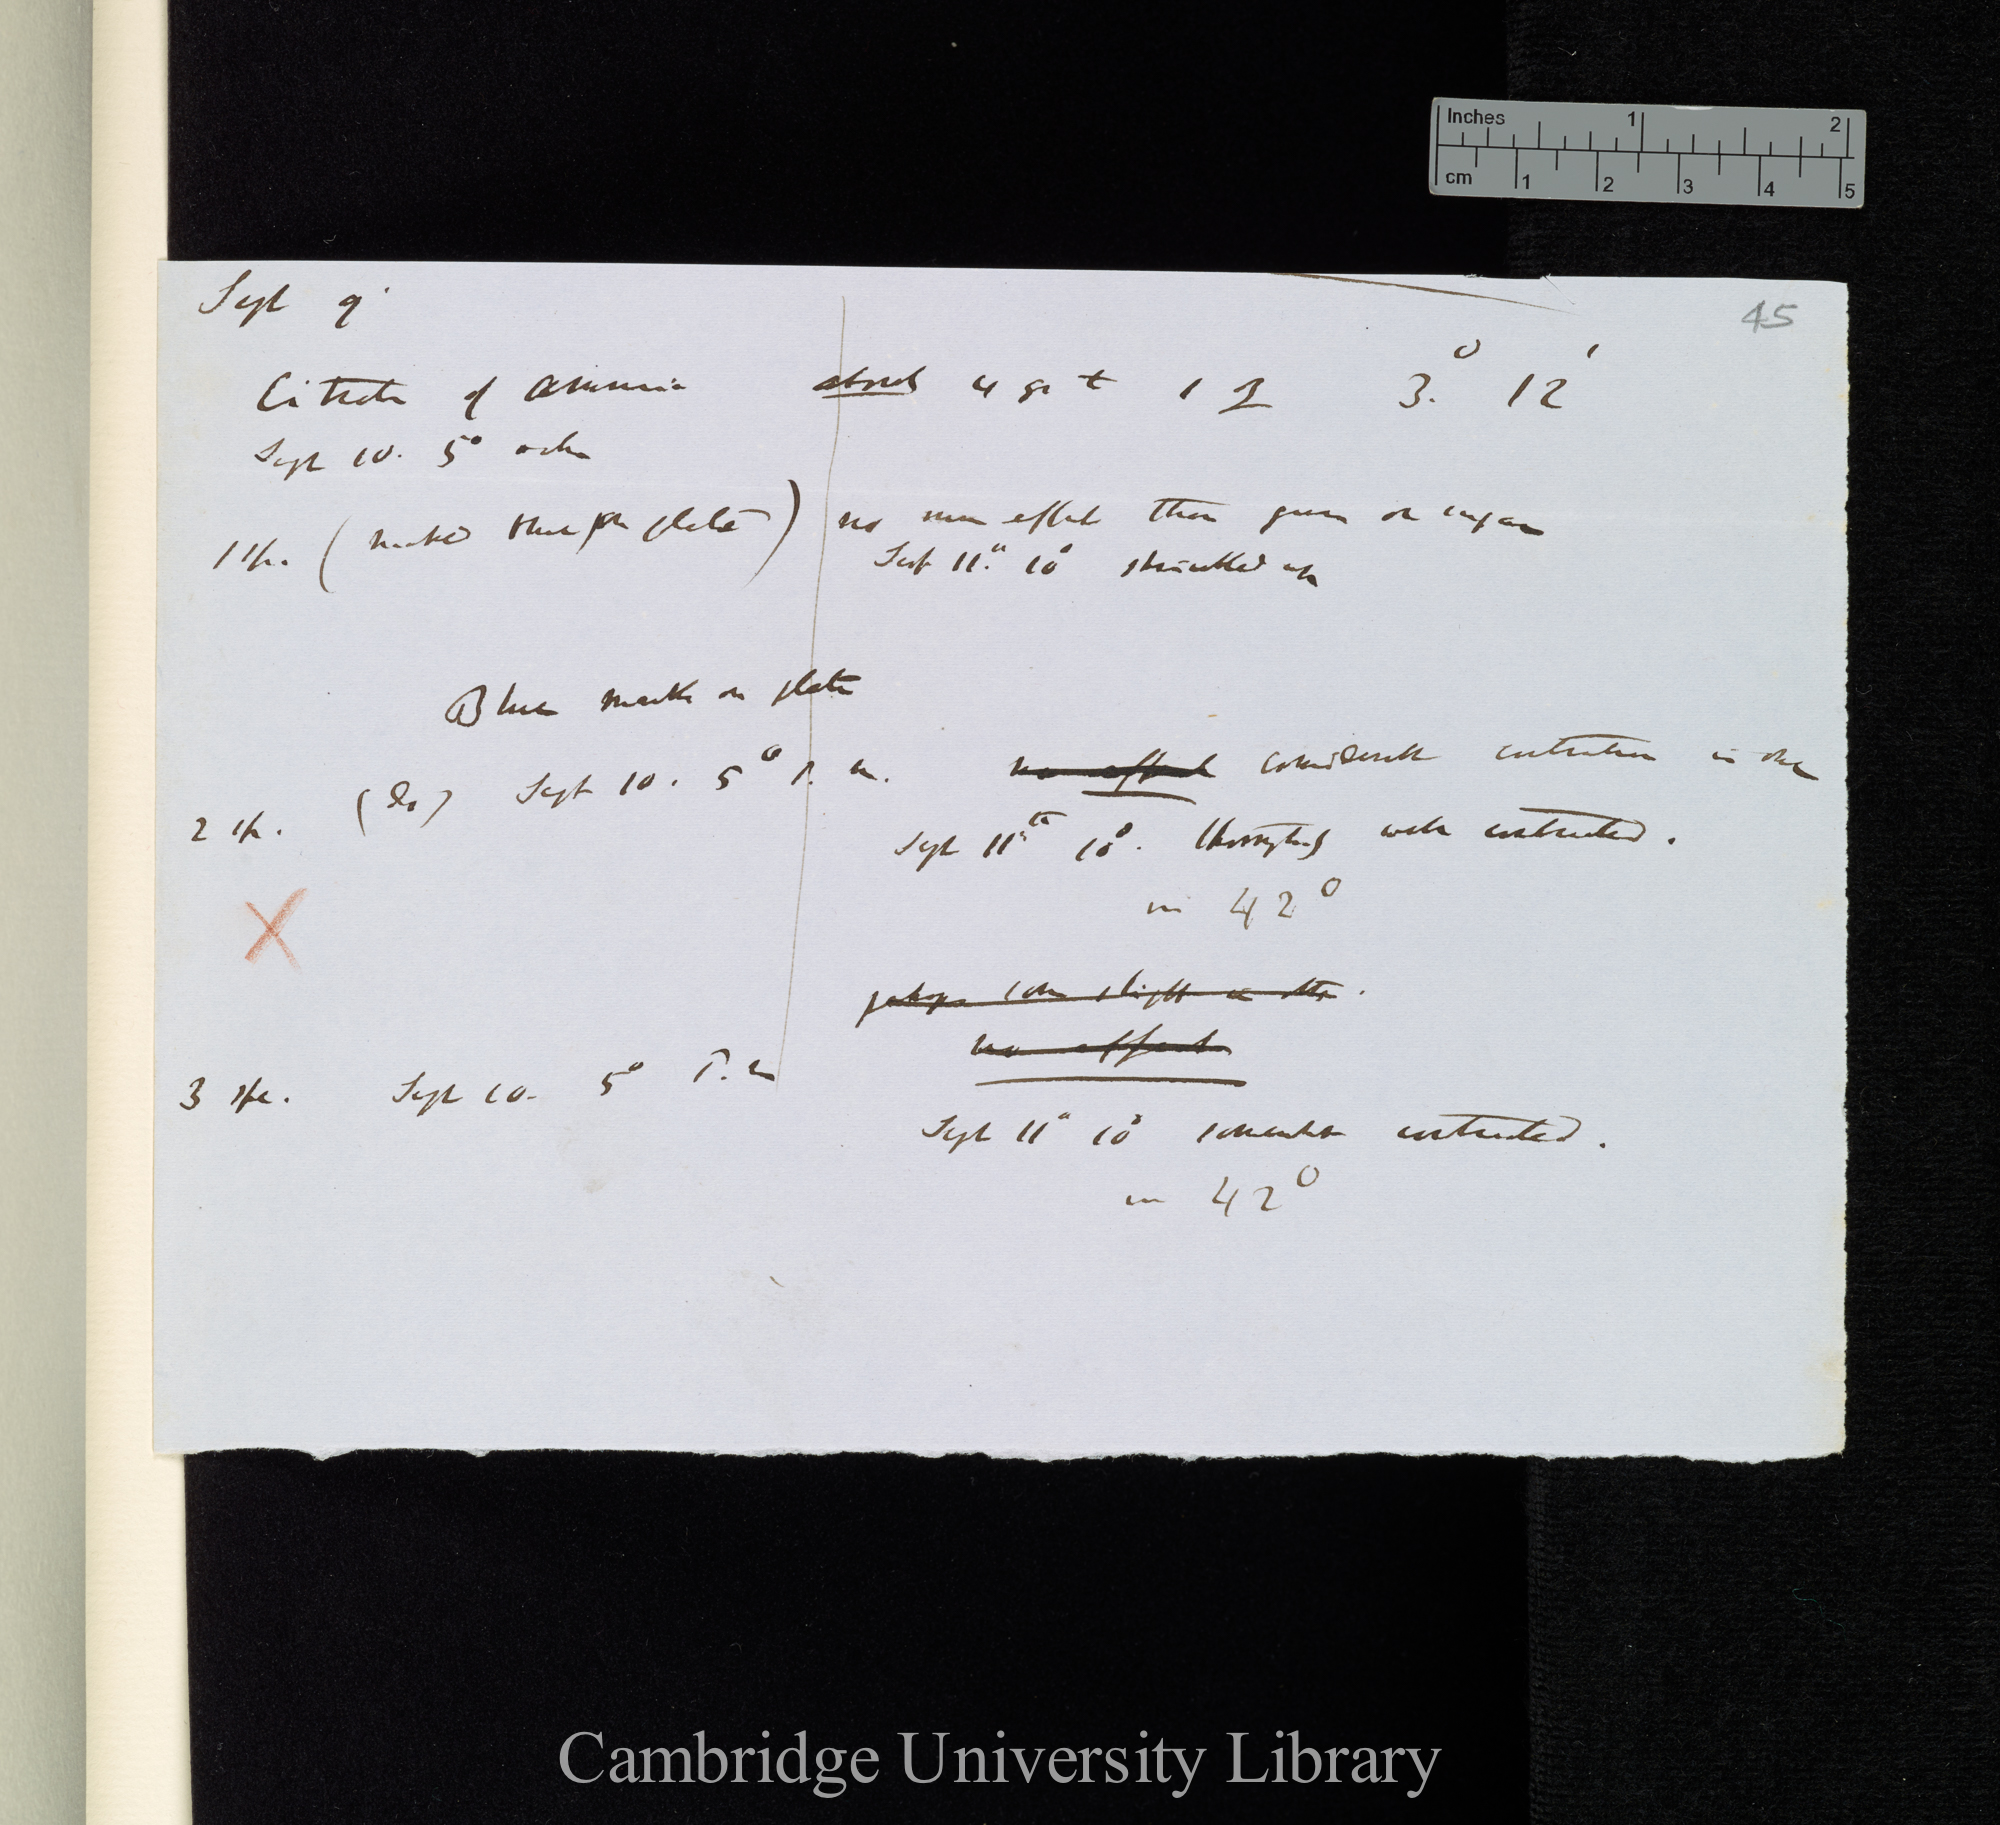 Inches 1 2
cm 1 2 3 4 5
45
Sept 9'
Citrate of Ammonia about 4 gr t 1 ℥ 3.° 12'
Sept 10. 5°
1 spe. (marked plate) no more effect than given on
Sept 11." 10° shrivelled up
Blue mark on plate
2 spe. (Do) Sept 10. 5° P. m. no effect considerable contraction in one
Sept 11th 10°. thoroughly well contracted.
in 42°
X
perhaps some slight in other.
no effect
3 spe. Sept 10. 5° P. m
Sept 11" 10° somewhat contracted.
in 42°
Cambridge University Library